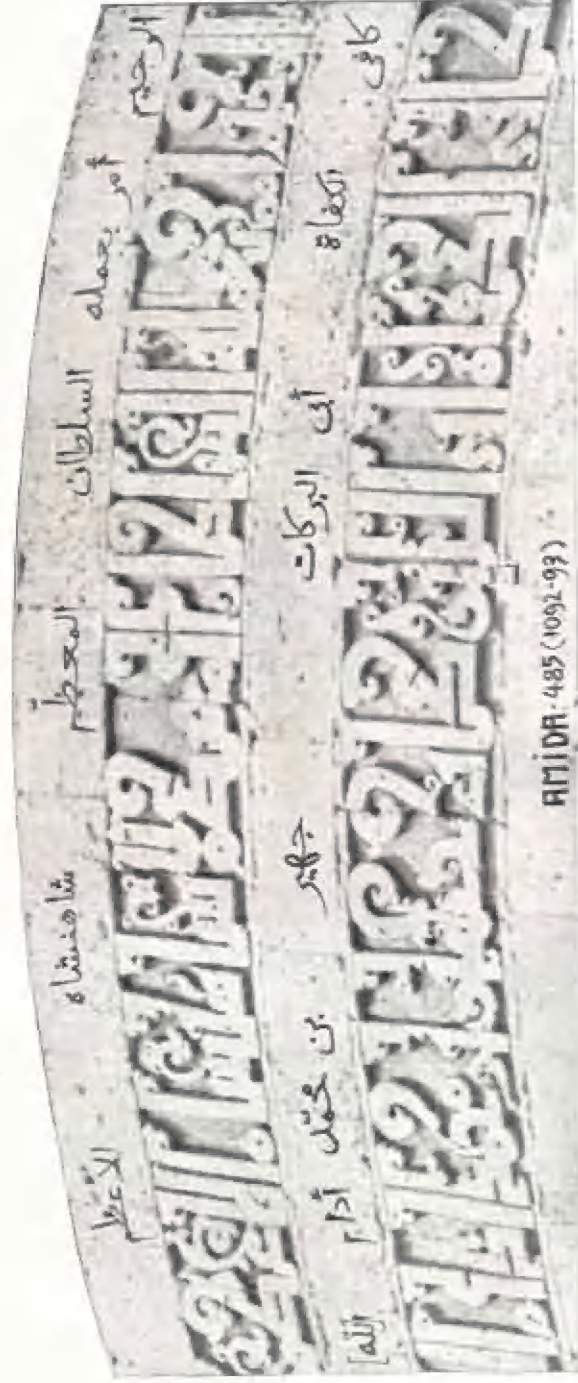 الرحيم أمر بعمله السلطان المعظم شاهنشاه الأعظم
كافى الكفاة أبى البركات جهير بن محمد أدام [الله]
AMIDA · 485 (1092-93)